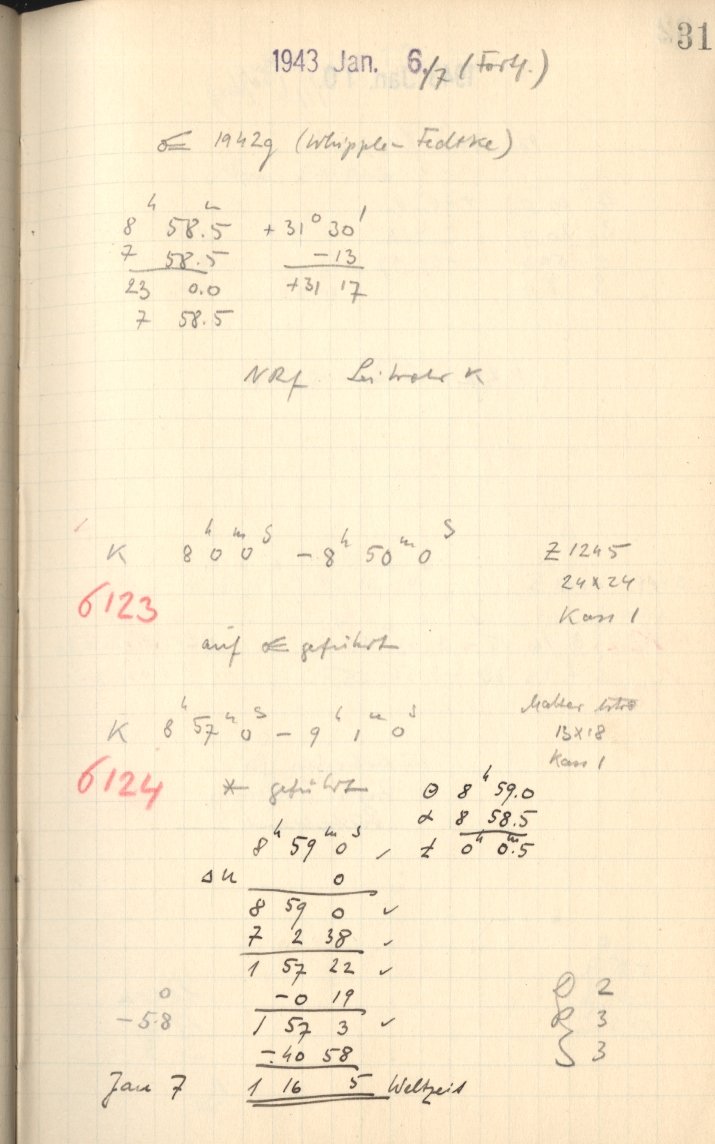 31
1943 Jan. 6./7 (Forts.)
☄ 1942g (Whipple-Fedtke)
8ʰ 58.5ᵐ +31° 30'
7 58.5 -13
23 0.0 +31 17
7 58.5
NRf Leitrohr K
K 8ʰ 0ᵐ 0ˢ - 8ʰ 50ᵐ 0ˢ Z 1245
24x24
6123 Kass 1
auf ☄ geführt
K 8ʰ 57ᵐ 0ˢ - 9ʰ 1ᵐ 0ˢ
13x18
Kass 1
6124 * geführt Θ 8ʰ 59.0
α 8 58.5
8ʰ 59ᵐ 0ˢ ✓ t 0ʰ 0ᵐ.5
Δu 0
8 59 0 ✓
7 2 38 ✓
1 57 22 ✓
0 -0 19 2
-58 1 57 3 ✓ 3
-40 58 3
Jan 7 1 16 5 Weltzeit